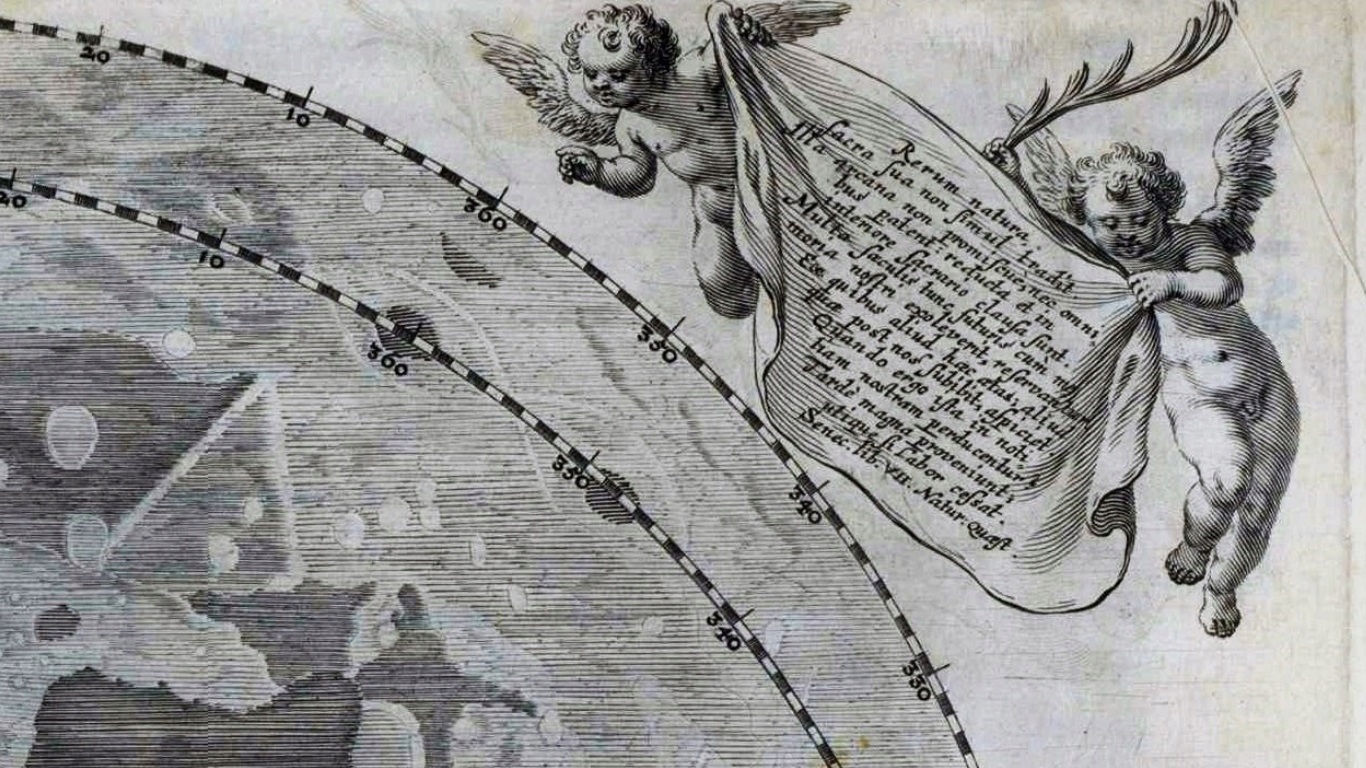 20
10
360
350
340
330
20
10
360
350
340
Rerum natura,
sacra sua non simul tradit
Illa arcana non promiscuè nec omni
bus patent: reducta et in
interiore sacrario clausa sunt.
Multa sæculis tunc futuris cum me
moria nostri exoleverit, reservantur
Ex quibus aliud hæc ætas, aliud
quæ post nos subibit, aspiciet.
Quando ergo ista in noti
tiam nostram perducentur?
Tardè magna proveniunt;
utique si labor cessat.
Senec. lib. VII. Natur. Quæst.